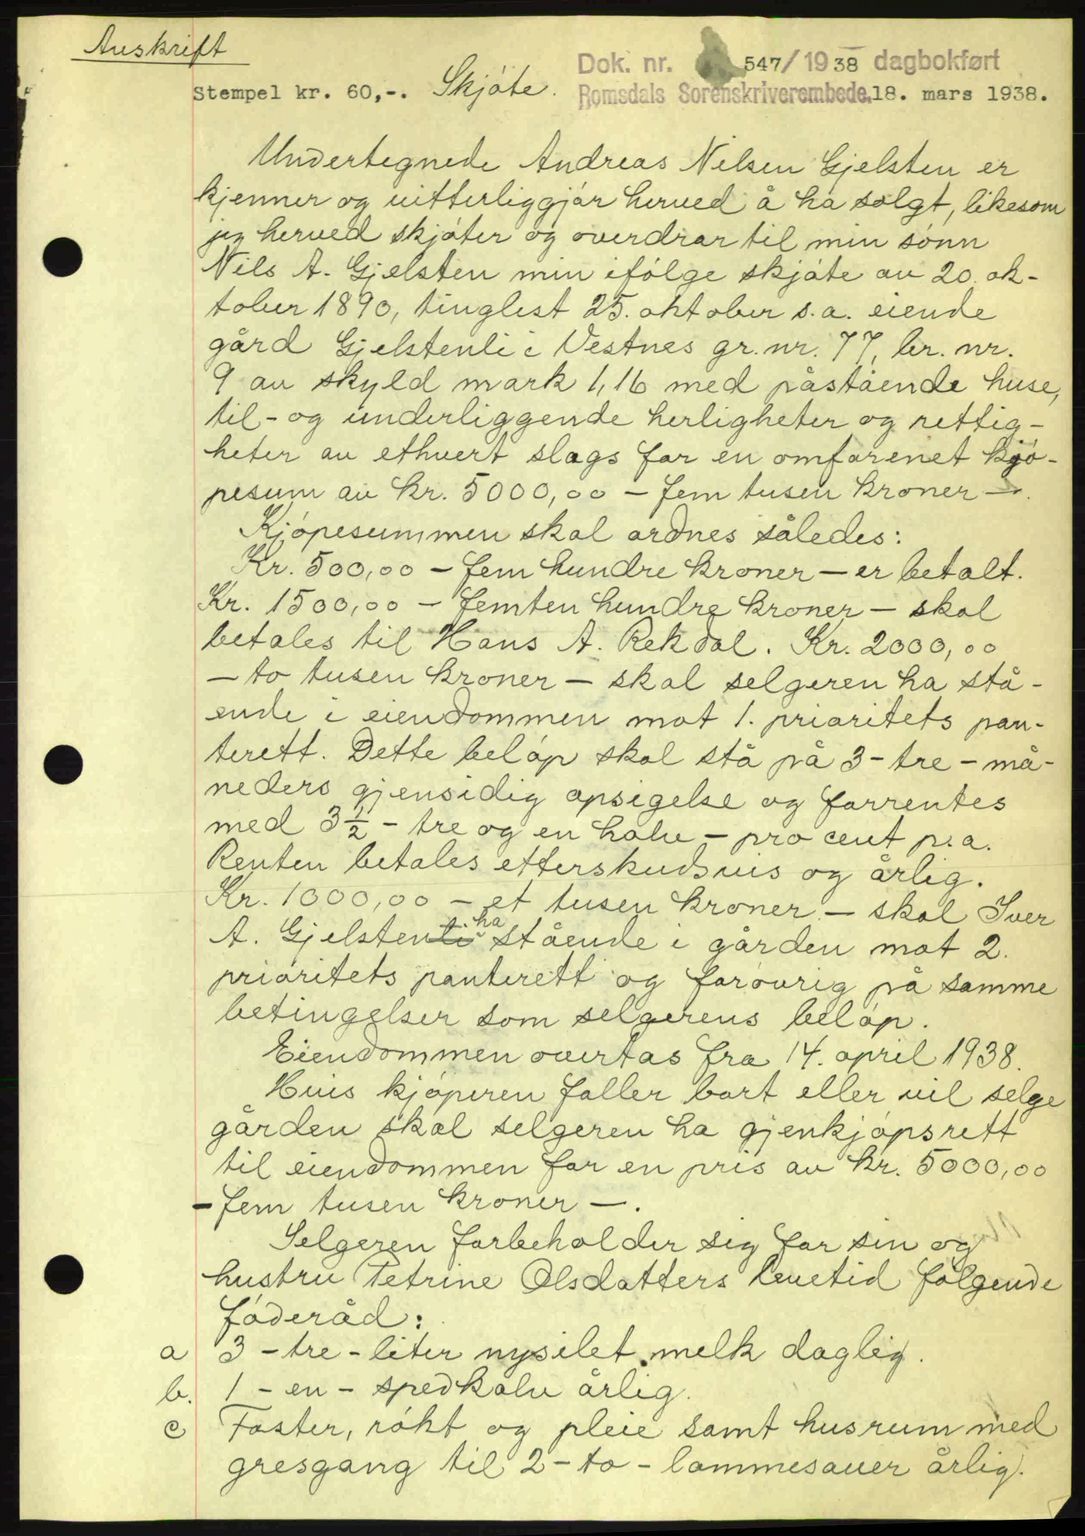 Auskrift
Dok. nr. 547/1938 dagbokført
Stempel kr. 60,-. Skjóte. Romsdals Sorenskriverembede. 18. mars 1938.
Undertegnede Andreas Nilsen Gjelsten er
kjenner og vitterliggjór herved å ha solgt, likesom
jeg herved skjóter og overdrar til min sónn
Nils A. Gjelsten min ifólge skjóte av 20. ok-
tober 1890, tinglest 25. oktober s.a. eiende
gård Gjelstenli i Vestnes gr. nr. 77, br. nr.
9 av skyld mark 1,16 med påstående huse,
til- og underliggende herligheter og rettig-
heter av ethvert slags for en omforenet kjó-
pesum av kr. 5000,00 - fem tusen kroner -.
Kjópesummen skal ordnes således:
Kr. 500,00 - fem hundre kroner - er betalt.
Kr. 1500,00 - femten hundre kroner - skal
betales til Hans A. Rekdal. Kr. 2000,00
- to tusen kroner - skal selgeren ha stå-
ende i eiendommen mot 1. prioritets pan-
terett. Dette belóp skal stå på 3 - tre - må-
neders gjensidig opsigelse og forrentes
med 3 1/2 - tre og en halv - pro cent p.a.
Renten betales etterskudsvis og årlig.
Kr. 1000,00 - et tusen kroner - skal Iver
A. Gjelstenli ha stående i gården mot 2.
prioritets panterett og foróvrig på samme
betingelser som selgerens belóp.
Eiendommen overtas fra 14. april 1938.
Hvis kjóperen faller bort eller vil selge
gården skal selgeren ha gjenkjópsrett
til eiendommen for en pris av kr. 5000,00
- fem tusen kroner -.
Selgeren forbeholder sig for sin og
hustru Petrine Olsdatters levetid fólgende
fóderåd:
a 3 - tre - liter nysilet melk daglig.
b. 1 - en - spedkalv årlig.
c Foster, rókt og pleie samt husrum med
gresgang til 2 - to - lammesauer årlig.